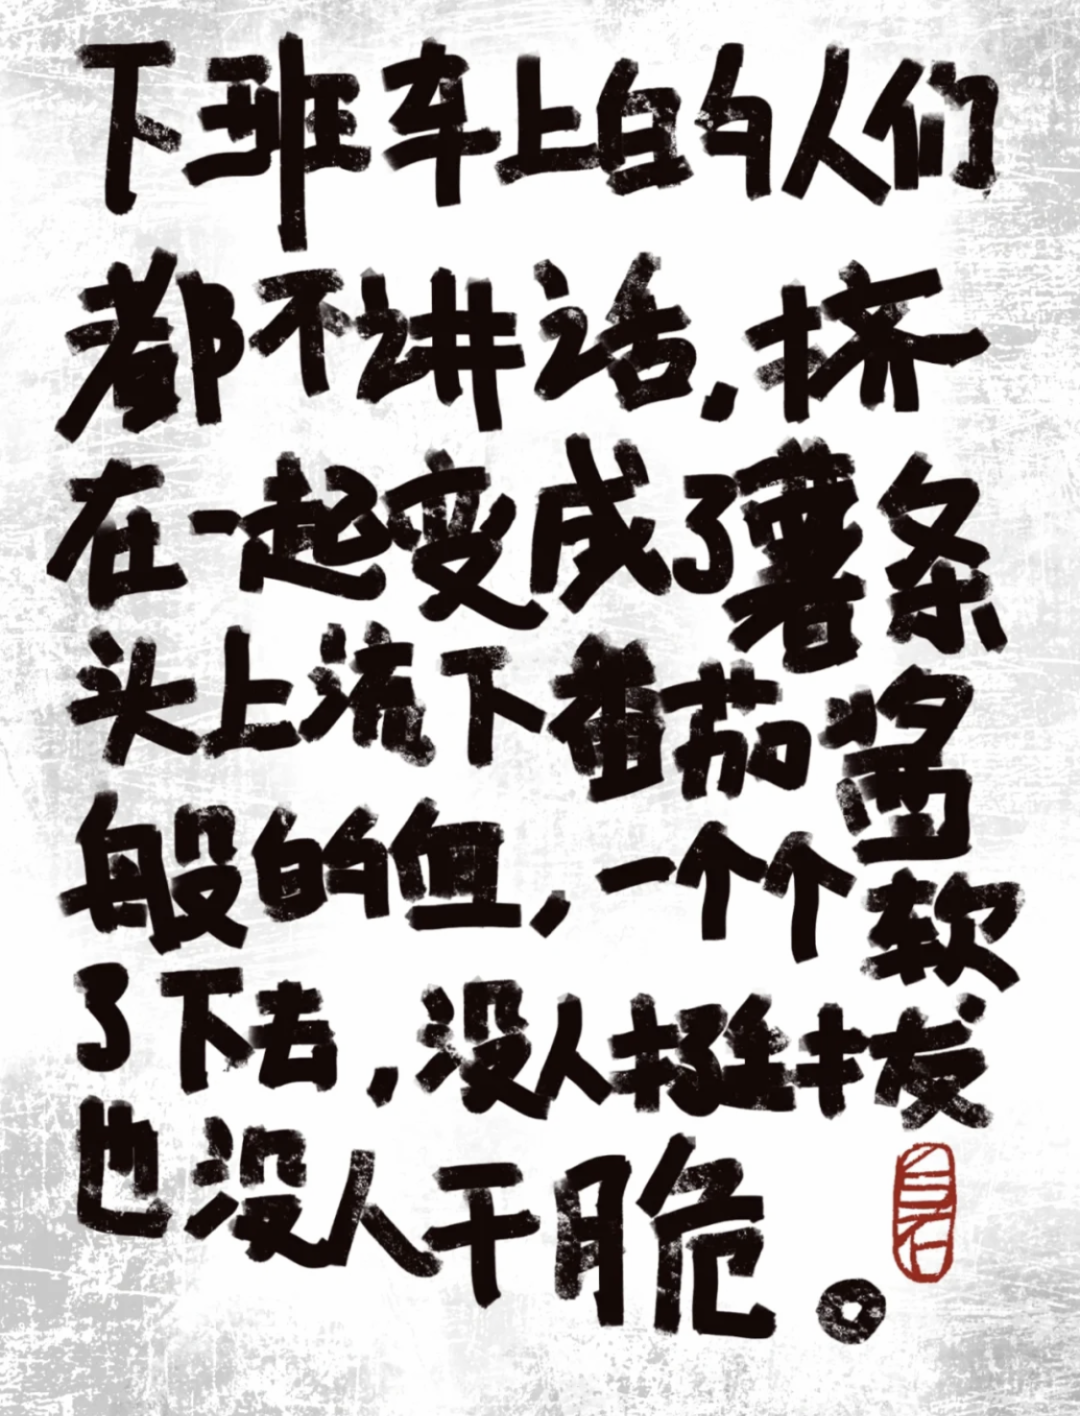 下班车上的人们
都不讲话，挤
在一起变成了薯条
头上流下番茄酱
般的血，一个个软
了下去，没人挺拔
也没人干脆。